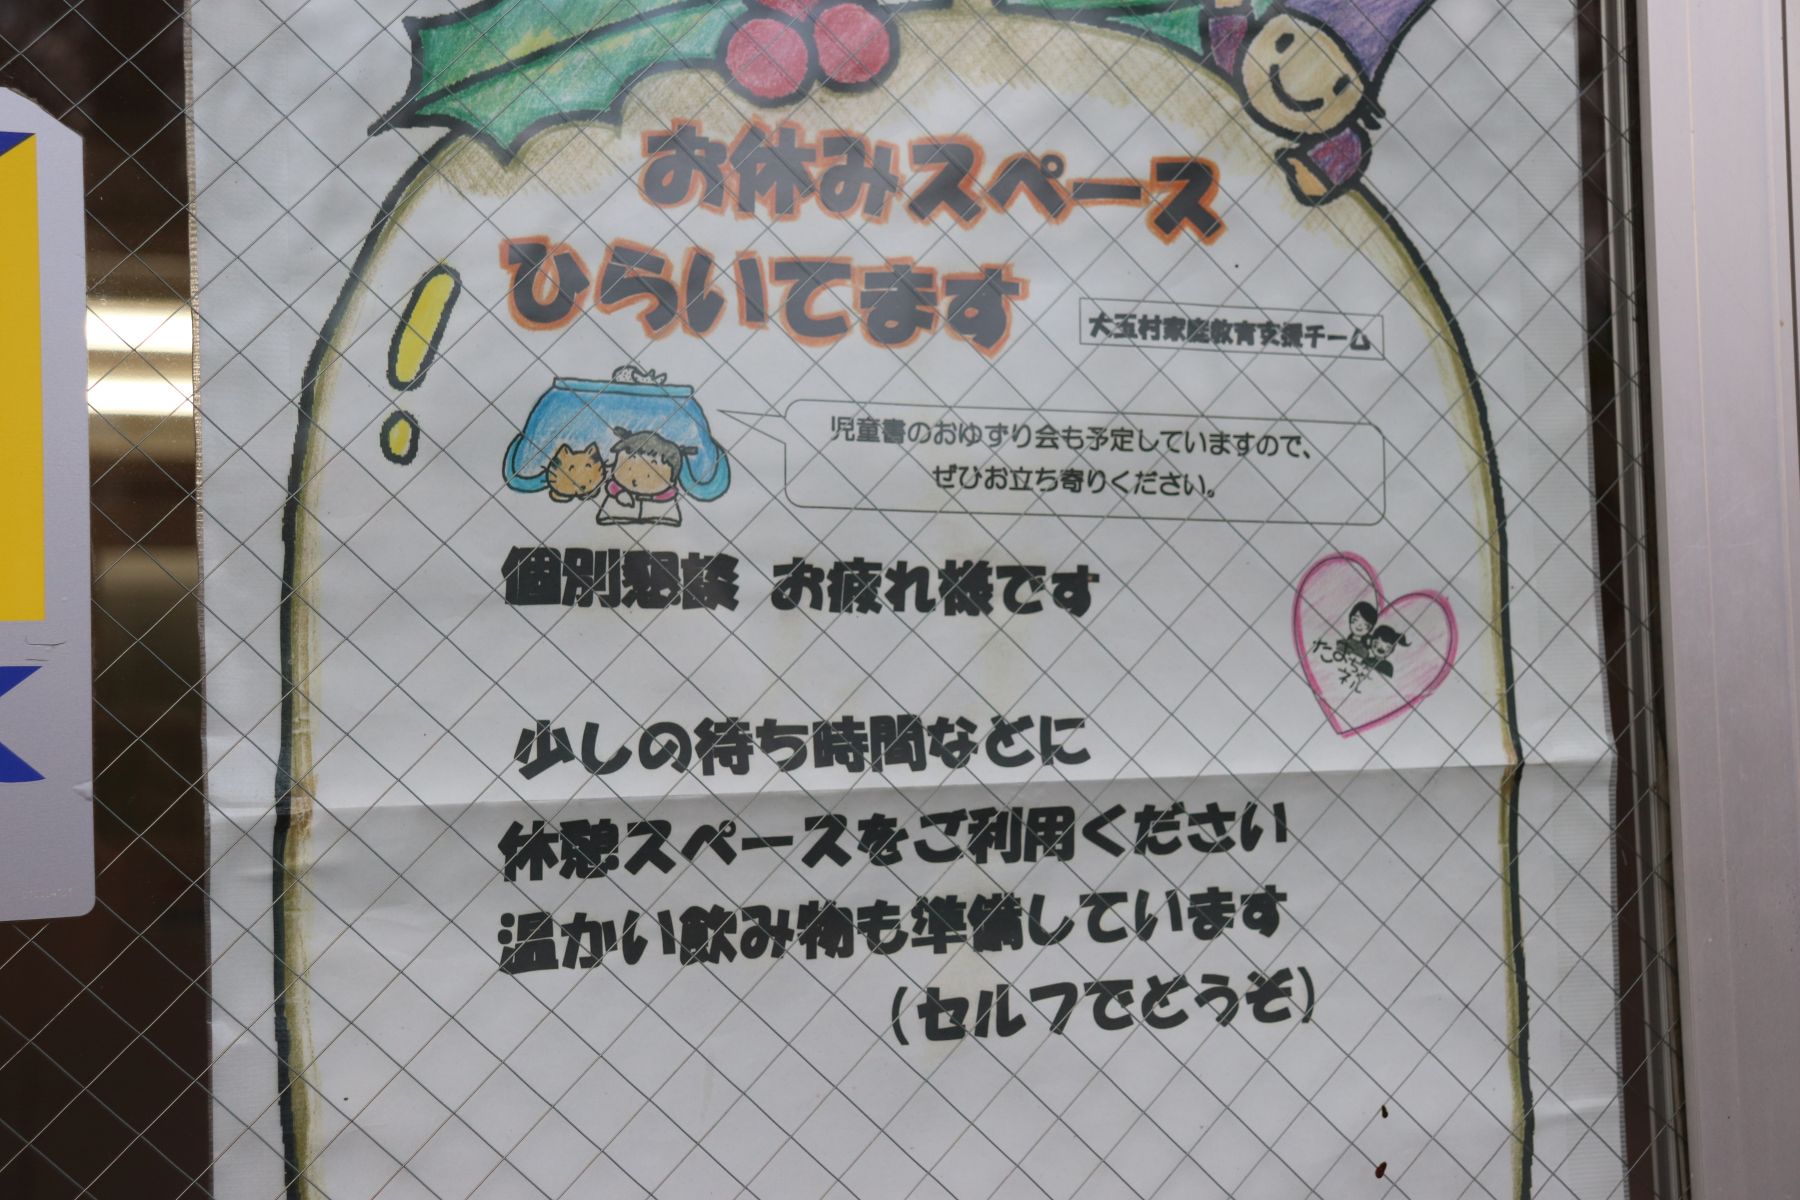 お休みスペース
ひらいてます
大玉村家庭教育支援チーム
児童書のおゆずり会も予定していますので、
ぜひお立ち寄りください。
個別懇談 お疲れ様です
少しの待ち時間などに
休憩スペースをご利用ください
温かい飲み物も準備しています
(セルフでどうぞ)